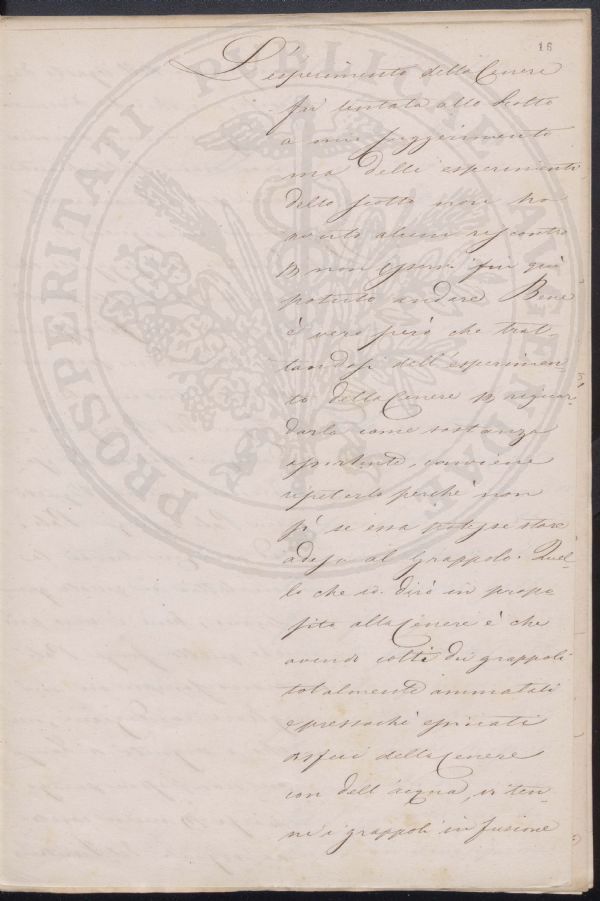 16
L'esperimento della Cenere
fu tentata allo Scotto
a mio suggerimento
ma delli esperimenti
dello Scotto non ho
avuto alcun riscontro
non essersi fin quì
potuto andare Bene
è vero però che trat-
tandosi dell'esperimen-
to della Cenere riguar-
darla come sostanza
, conviene
ripeterlo perchè non
si se essa potesse stare
adesa al grappolo. Quel-
lo che io dirò in propo-
sito alla Cenere è che
avendo colti dei grappoli
totalmente ammalati
e pressochè essiccati
della Cenere
con dell'acqua, vi ten-
ni i grappoli in fusione
PROSPERITATI PUBLICAE AUGENDAE